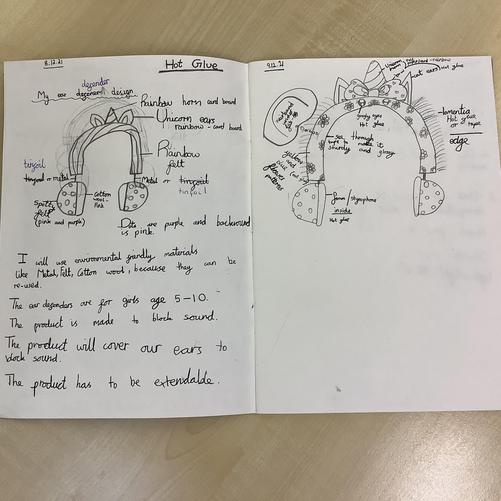 8.12.21
Hot Glue
defender
My ear design
Rainbow horn card board
Unicorn ears
rainbow - card board
Rainbow
felt
tinfoil
or metal
Metal or
tinfoil
Cotton
wool -
pink
Spotty
felt
(pink and purple)
Dots are purple and background
is pink.
I will use environmental friendly materials
like Metal, Felt, Cotton wool, because they can be
re-used.
The ear defenders are for girls age 5-10.
The product is made to block sound.
The product will cover our ears to
block sound.
The product has to be extendable.
9.12.21
Unicorn
rainbow
cat ears
hot glue
googly eyes
Hot glue
see through
tape to make it
shiny and glossy
lamentia
Hot glue
or tape
edge
flower
patterns
foam / styraphone
inside
Hot glue